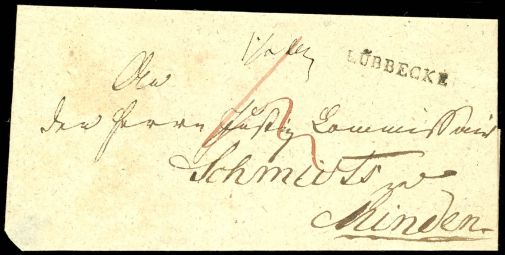 LÜBBECKE
An
den Herrn Justiz Commissair
Schmidts
Minden.